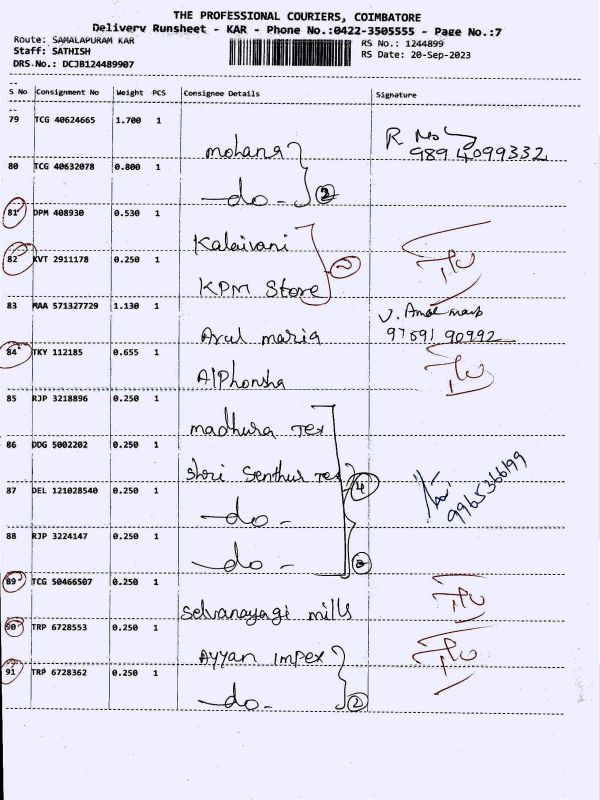 THE PROFESSIONAL COURIERS, COIMBATORE
Delivery Runsheet - KAR - Phone No.:0422-3505555 - Page No.:7
Route: SAMALAPURAM KAR
RS No.: 1244899
Staff: SATHISH
RS Date: 20-Sep-2023
DRS No.: DCJB124489907
S No Consignment No Weight PCS Consignee Details Signature
79 TCG 40624665 1.700 1
mohana R
9894099332
80 TCG 40632078 0.800 1
-do- 2
81 DPM 408930 0.530 1
Kalaivani
82 KVT 2911178 0.250 1
KPM Store
83 MAA 571327729 1.130 1
Arul maria 97591 90992
84 TKY 112185 0.655 1
Alphonsha
85 RJP 3218896 0.250 1
madhura Tex
86 DDG 5002202 0.250 1
Shri Senthur Tex
87 DEL 121028540 0.250 1
4
-do-
9965366199
88 RJP 3224147 0.250 1
-do-
89 TCG 50466507 0.250 1
Selvanayagi mills
90 TRP 6728553 0.250 1
Ayyan Impex
91 TRP 6728362 0.250 1
-do- 2